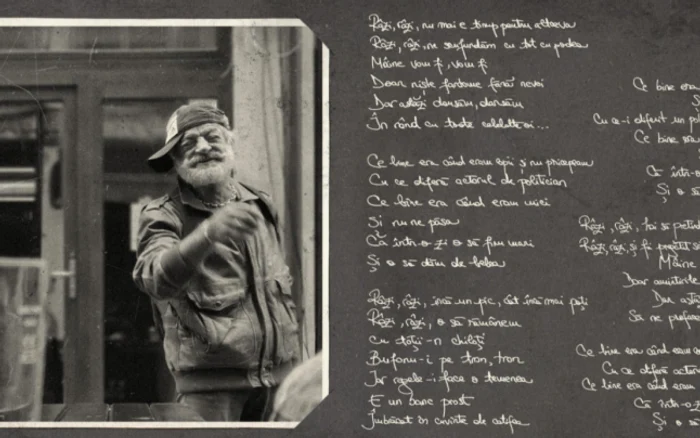 Râzi, râzi, nu mai e timp pentru altceva
Râzi, râzi, ne scufundăm cu tot cu podea
Mâine vom fi, vom fi
Doar niște fantome fără nevoi
Dar astăzi dansăm, dansăm
În rând cu toate celelalte oi...
Ce bine era când eram copii și nu pricepeam
Cu ce diferă actorul de politician
Ce bine era când eram mici
Și nu ne păsa
Că într-o zi o să fim mari
Și o să dăm de belea
Râzi, râzi, încă un pic, cât încă mai poți
Râzi, râzi, o să rămânem
cu toții-n chiloți
Bufonu-i pe tron, tron
Iar regele-i face o temenea
E un banc prost
Îmbrăcat în cuvinte de catifea
Ce bine era
Și
Cu ce-i diferit un pol
Ce bine era
Că într-o
Și o să
Râzi, râzi, hai să
Râzi, râzi, și fi
Mâine
Doar amintirile
Dar astă
Să ne prefacem
Ce bine era când eram c
Cu ce diferă actoru
Ce bine era când eram
Că într-o z
Și o s